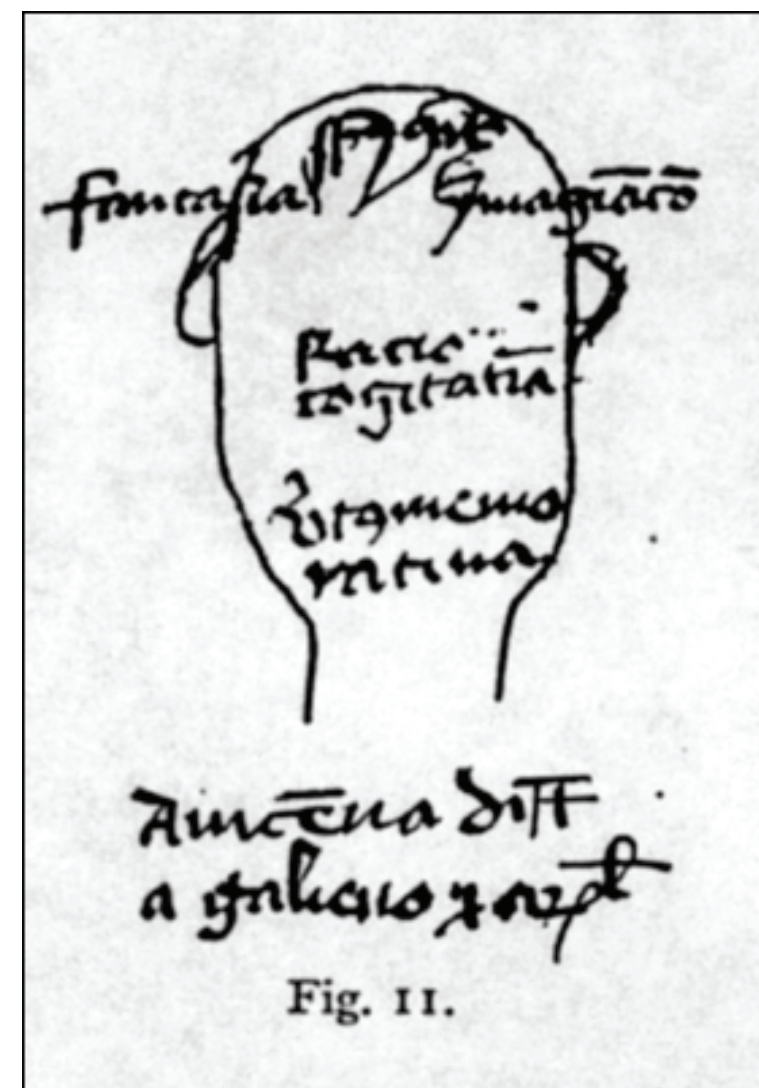 fantasia ymagiãcõ
Racio
cogitatĩa
Vtꝰ memo
ratiua
Auicẽna diff
a galieno
Fig. 11.